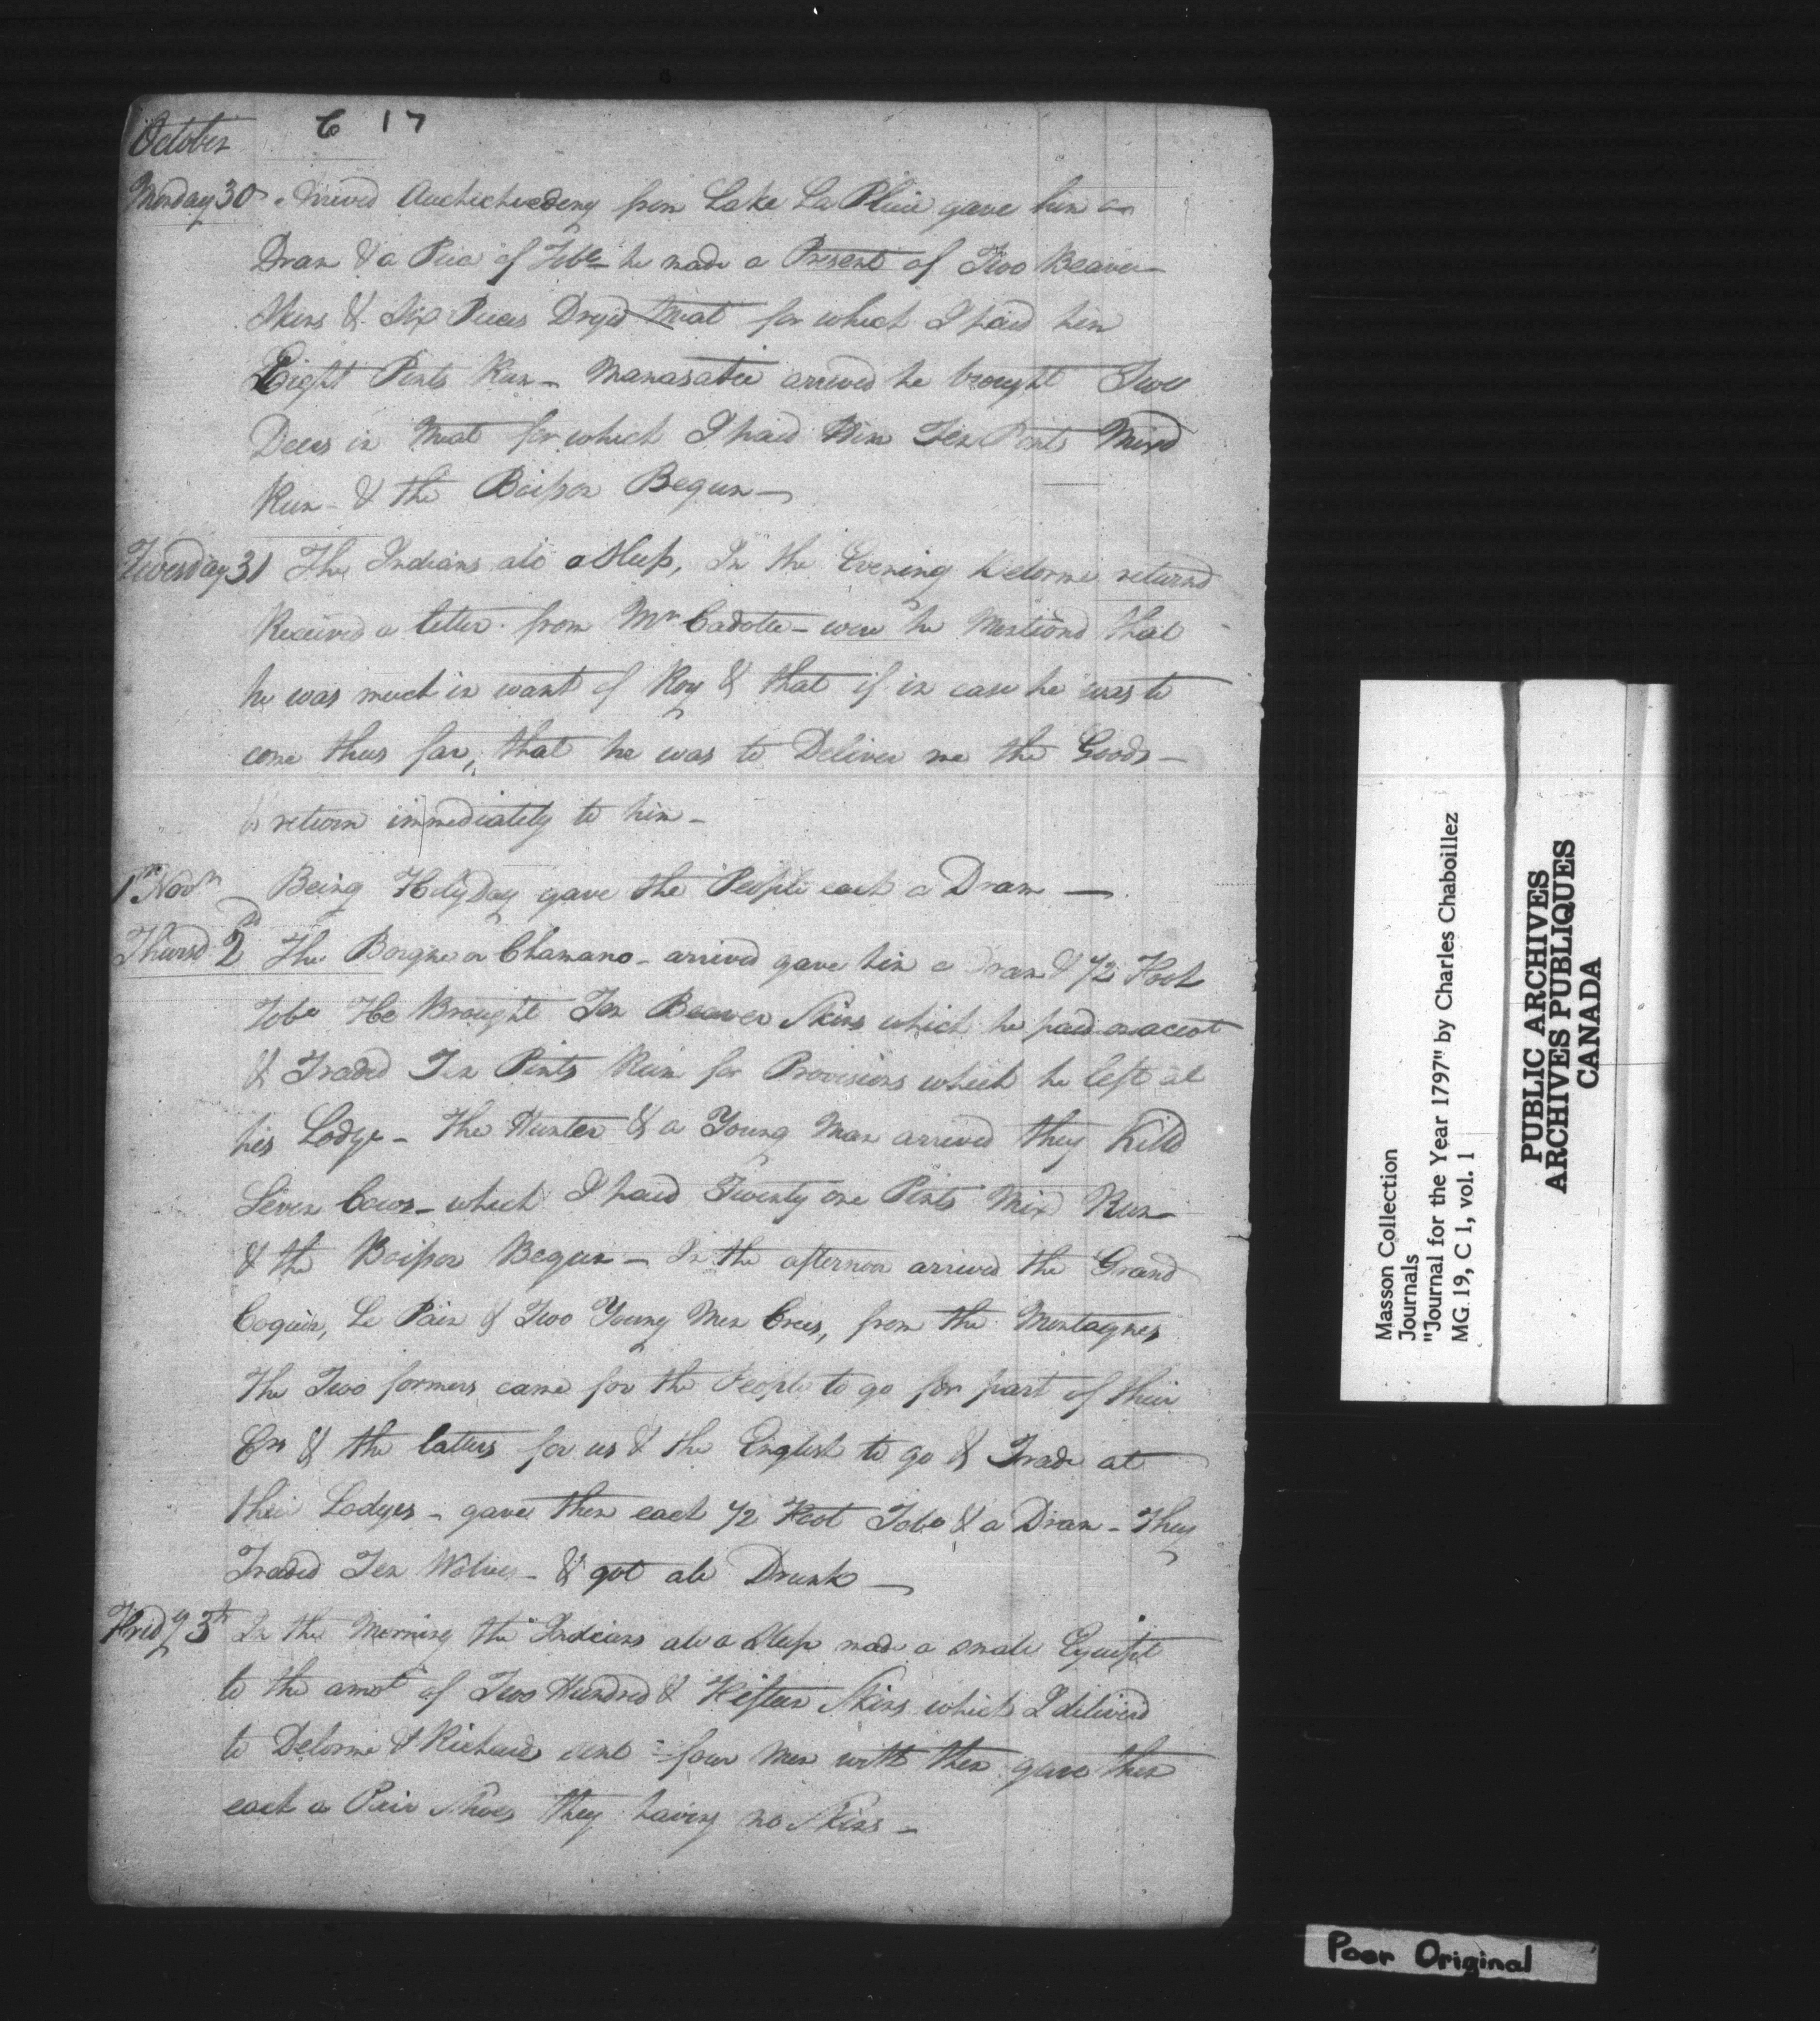 October 6 17
Monday 30 Arrived Auchechecdeny from Lake La Pluie gave him a
Dram & a Piece of Tobo he made a Present of Two Beaver
Skins & Six Pieces Dryed Meat for which I paid him
Eight Pints Rum - Manasatee arrived he brought Two
Deers in Meat for which I paid Him Ten Pints Mixd
Rum - & the Boisson Begun -
Tuesday 31 The Indians ale a Sleep, In the Evening Delorme returnd
Received a letter from Mr Cadotte - were he Mentiond that
he was much in want of Roy & that if in case he was to
come thus far, that he was to Deliver me the Goods -
& return immediately to him -
1st Novr Being HolyDay gave the People each a Dram -
Thursd 2d The Borgne or Chamano - arrived gave him a Dram & 1/2 Foot
Tobo He Brought Ten Beaver Skins which he paid on accot
& Traded Ten Pints Rum for Provisions which he left at
his Lodge - The Hunter & a Young Man arrived they killd
Seven Cows - which I paid Twenty one Pints Mix Rum
& the Boisson Begun - In the afternoon arrived the Grand
Coquin, Le Pain & Two Young Men Crees, from the Montagnes
The Two formers came for the People to go for part of their
Crs & the latters for us & the English to go & Trade at
their Lodges - gave them each 1/2 Foot Tobo & a Dram - They
Traded Ten Wolves - & got ale Drunk -
Fridy 3th In the Morning the Indians ale a Sleep made a smale Equipt
to the amot of Two Hundred & Fifteen Skins which I deliverd
to Delorme & Richard, sent four Men with them gave them
each a Pair Shoes they having no Skins -
Masson Collection
Journals
"Journal for the Year 1797" by Charles Chaboillez
MG 19, C 1, vol. 1
PUBLIC ARCHIVES
ARCHIVES PUBLIQUES
CANADA
Poor Original